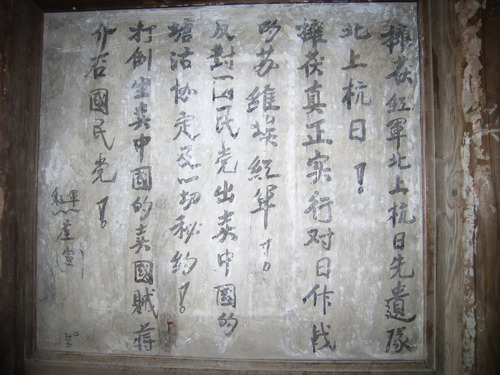 擁护红軍北上抗日先遣隊
北上抗日！
擁护真正实行对日作战
的苏維埃红軍！
反對国民党出卖中國的
塘沽协定及一切秘约！
打倒出卖中國的卖國贼蒋
介石國民党！
红軍
宣